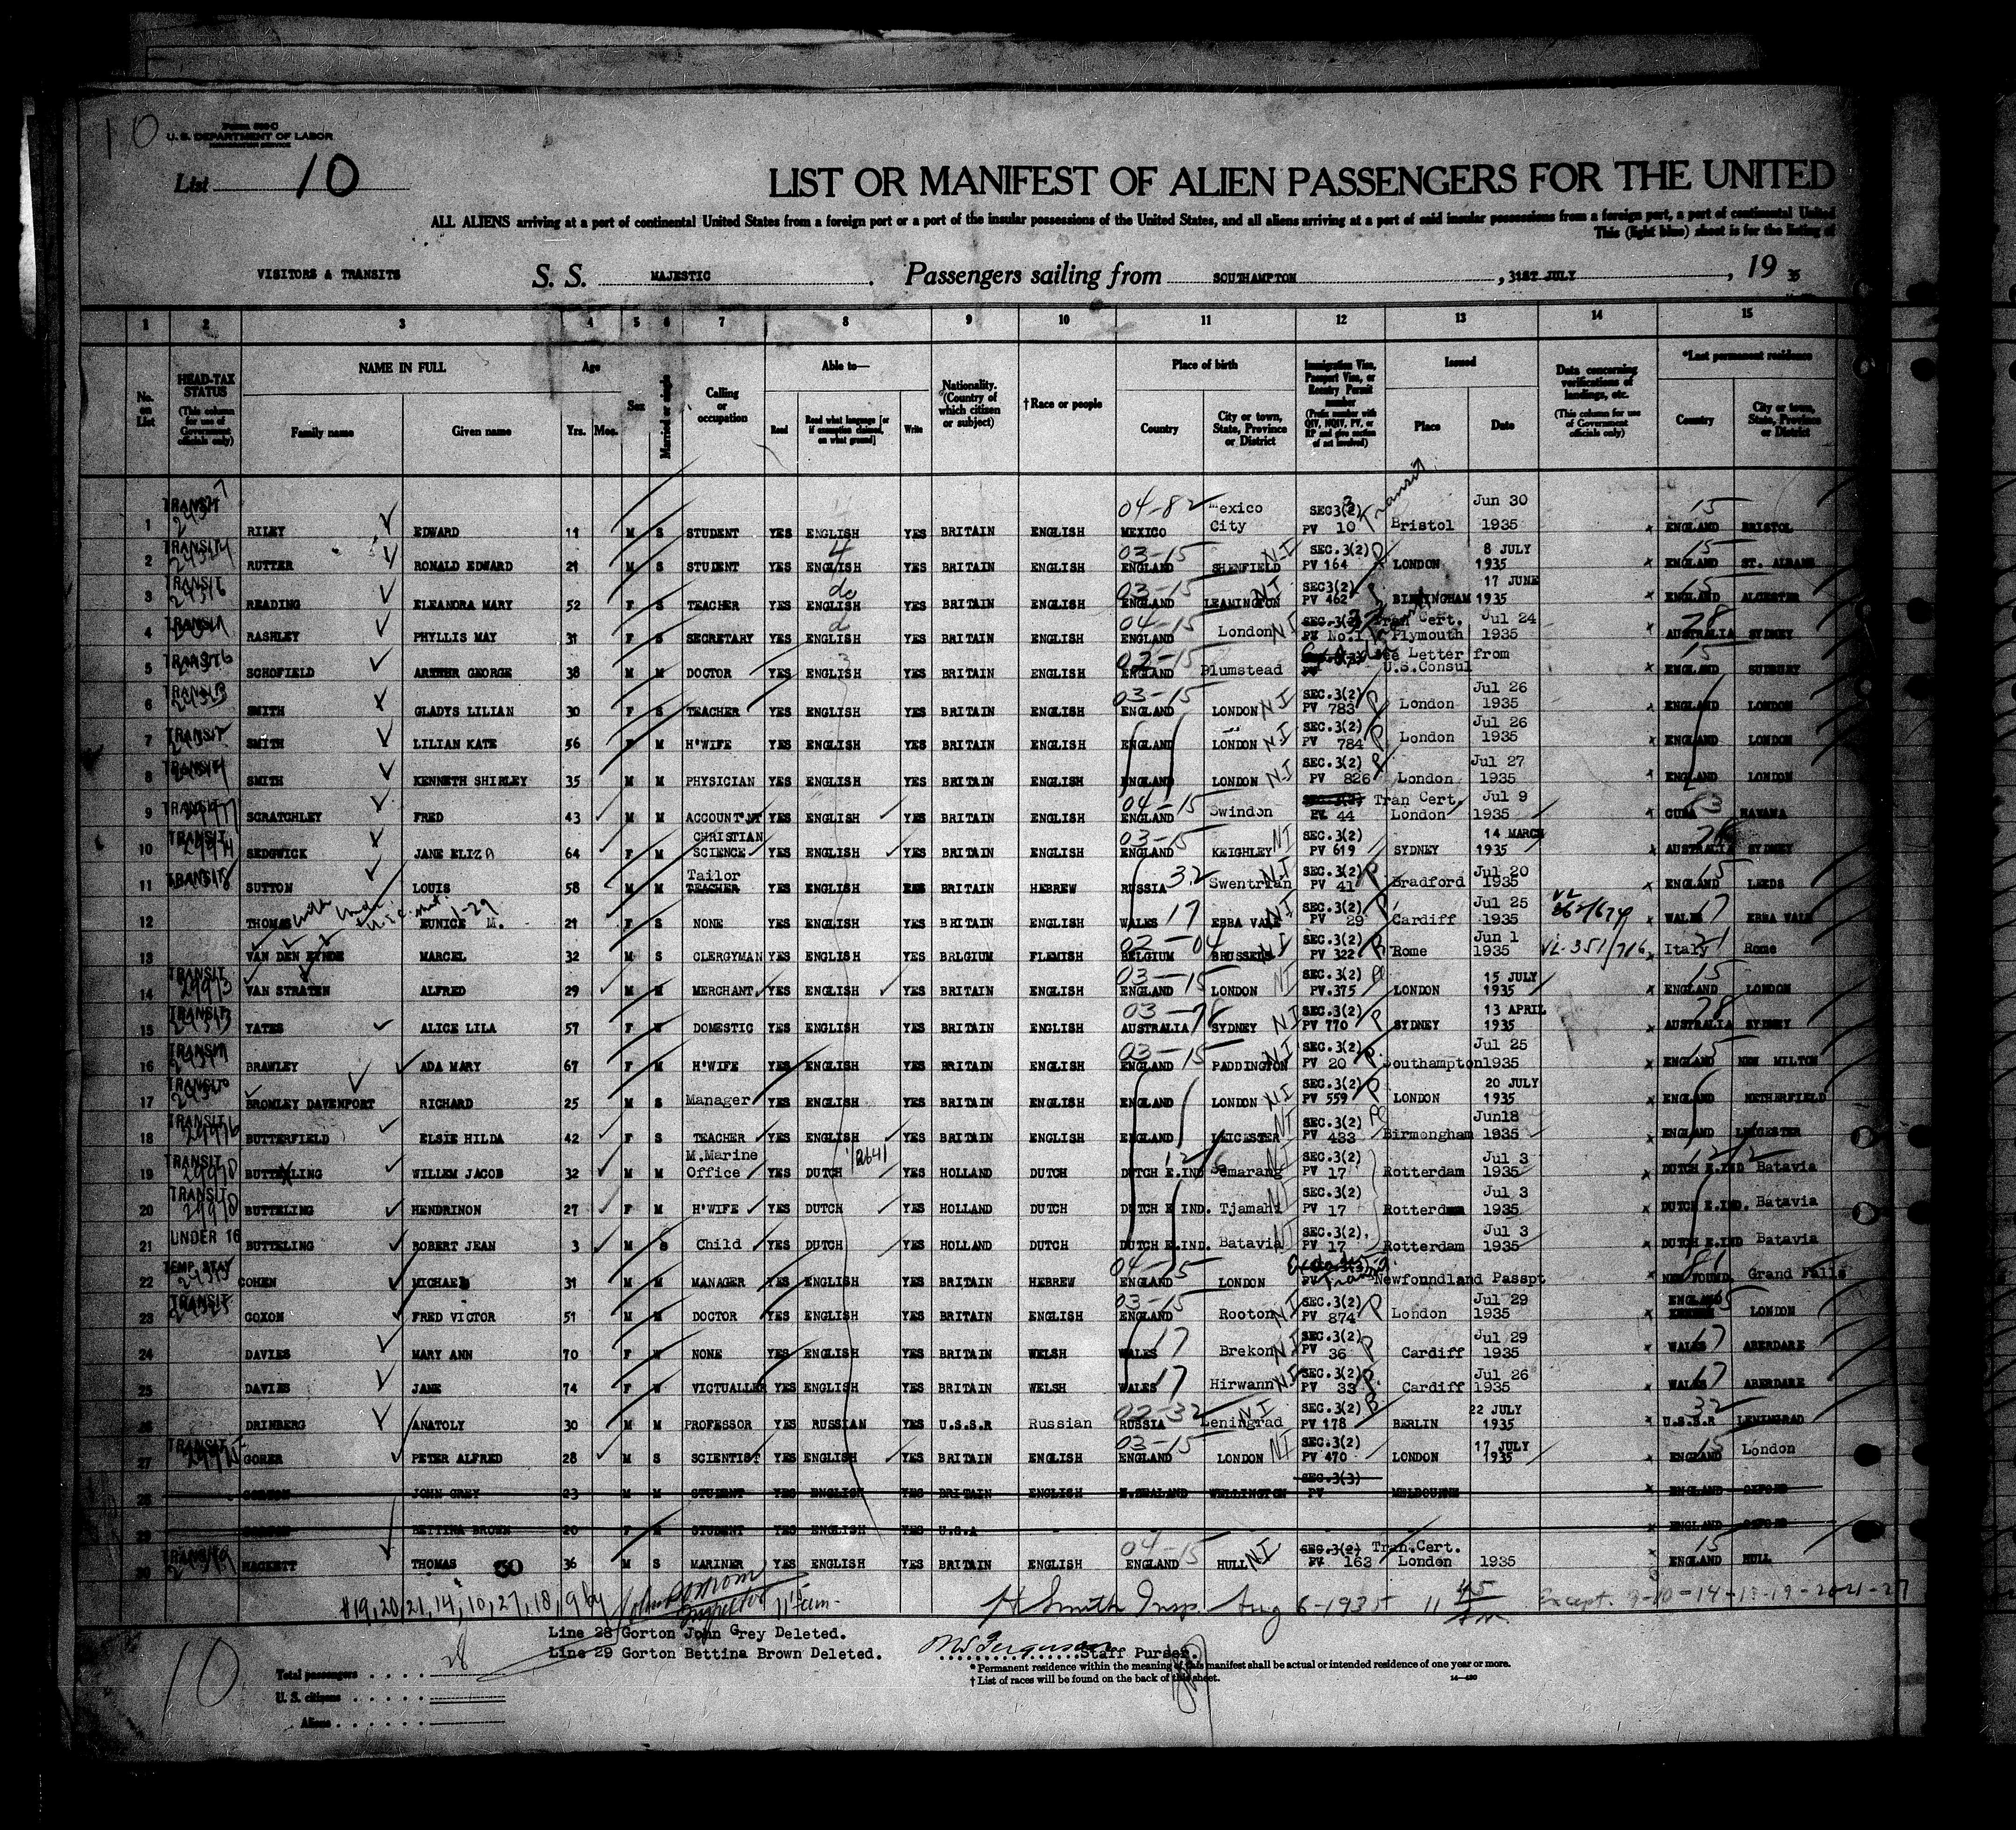 10
Form 500 C
U. S. DEPARTMENT OF LABOR
IMMIGRATION SERVICE
List 10
LIST OR MANIFEST OF ALIEN PASSENGERS FOR THE UNITED
ALL ALIENS arriving at a port of continental United States from a foreign port or a port of the insular possessions of the United States, and all aliens arriving at a port of said insular possessions from a foreign port, a port of continental United
This (light blue) sheet is for the listing of
VISITORS & TRANSITS S. S. MAJESTIC . Passengers sailing from SOUTHAMPTON , 31ST JULY , 19 35
1 2 3 4 5 6 7 8 9 10 11 12 13 14 15
No. on List
HEAD-TAX STATUS (This column for use of Government officials only)
NAME IN FULL Family name Given name
Age Yrs. Mos.
Sex
Married or single
Calling or occupation
Able to— Read Read what language [or if exemption claimed, on what ground] Write
Nationality. (Country of which citizen or subject)
†Race or people
Place of birth Country City or town, State, Province or District
Immigration Visa, Passport Visa, or Reentry Permit number (Prefix number with QIV, NQIV, PV, or RP and give section of act involved)
Issued Place Date
Data concerning verifications of landings, etc. (This column for use of Government officials only)
*Last permanent residence Country City or town, State, Province or District
1 TRANSIT RILEY EDWARD 11 M S STUDENT YES ENGLISH YES BRITAIN ENGLISH 04-82 MEXICO Mexico City SEC 3(2) PV 10 Transit Bristol Jun 30 1935 x 15 ENGLAND BRISTOL
2 TRANSIT RUTTER RONALD EDWARD 21 M S STUDENT YES ENGLISH YES BRITAIN ENGLISH 03-15 ENGLAND SHENFIELD NI SEC.3(2) PV 164 LONDON 8 JULY 1935 x 15 ENGLAND ST. ALBANS
3 TRANSIT READING ELEANORA MARY 52 F S TEACHER YES ENGLISH YES BRITAIN ENGLISH 03-15 ENGLAND LEAMINGTON NI SEC3(2) PV 462 BIRMINGHAM 17 JUNE 1935 x 15 ENGLAND ALCESTER
4 TRANSIT RASHLEY PHYLLIS MAY 31 F S SECRETARY YES ENGLISH YES BRITAIN ENGLISH 04-15 ENGLAND London NI PV No.1 Tran Cert. Plymouth Jul 24 1935 x 28 AUSTRALIA SYDNEY
5 TRANSIT SCHOFIELD ARTHUR GEORGE 38 M M DOCTOR YES ENGLISH YES BRITAIN ENGLISH 02-15 ENGLAND Plumstead See Letter from U.S.Consul x 15 ENGLAND SUDBURY
6 TRANSIT SMITH GLADYS LILIAN 30 F S TEACHER YES ENGLISH YES BRITAIN ENGLISH 03-15 ENGLAND LONDON NI SEC.3(2) PV 783 London Jul 26 1935 x ENGLAND LONDON
7 TRANSIT SMITH LILIAN KATE 56 F M H'WIFE YES ENGLISH YES BRITAIN ENGLISH ENGLAND LONDON NI SEC.3(2) PV 784 London Jul 26 1935 x ENGLAND LONDON
8 TRANSIT SMITH KENNETH SHIRLEY 35 M M PHYSICIAN YES ENGLISH YES BRITAIN ENGLISH ENGLAND LONDON NI SEC.3(2) PV 826 London Jul 27 1935 x ENGLAND LONDON
9 TRANSIT SCRATCHLEY FRED 43 M M ACCOUNT'NT YES ENGLISH YES BRITAIN ENGLISH 04-15 ENGLAND Swindon SEC.3(2) PV. 44 Tran Cert. London Jul 9 1935 x CUBA HAVANA
10 TRANSIT SEDGWICK JANE ELIZA 64 F M CHRISTIAN SCIENCE YES ENGLISH YES BRITAIN ENGLISH 03-15 ENGLAND KEIGHLEY NI SEC.3(2) PV 619 SYDNEY 14 MARCH 1935 x AUSTRALIA SYDNEY
11 TRANSIT SUTTON LOUIS 58 M M Tailor TEACHER YES ENGLISH YES BRITAIN HEBREW RUSSIA 32 Swentzian NI SEC.3(2) PV 41 Bradford Jul 20 1935 x 15 ENGLAND LEEDS
12 THOMAS EUNICE M. 21 F S NONE YES ENGLISH YES BRITAIN ENGLISH WALES 17 EBBA VALE NI SEC.3(2) PV 29 Cardiff Jul 25 1935 x WALES 17 EBBA VALE
13 VAN DEN EYNDE MARCEL 32 M S CLERGYMAN YES ENGLISH YES BELGIUM FLEMISH 02-04 BELGIUM BRUSSELS NI SEC.3(2) PV 322 Rome Jun 1 1935 VL-351/716 x Italy 21 Rome
14 TRANSIT 29973 VAN STRATEN ALFRED 29 M M MERCHANT YES ENGLISH YES BRITAIN ENGLISH 03-15 ENGLAND LONDON NI SEC.3(2) PV.375 LONDON 15 JULY 1935 x 15 ENGLAND LONDON
15 TRANSIT YATES ALICE LILA 57 F W DOMESTIC YES ENGLISH YES BRITAIN ENGLISH 03-78 AUSTRALIA SYDNEY NI SEC.3(2) PV 770 SYDNEY 13 APRIL 1935 x 78 AUSTRALIA SYDNEY
16 TRANSIT BRAWLEY ADA MARY 67 F M H'WIFE YES ENGLISH YES BRITAIN ENGLISH 03-15 ENGLAND PADDINGTON NI SEC.3(2) PV 20 Southampton Jul 25 1935 x 15 ENGLAND NEW MILTON
17 TRANSIT BROMLEY DAVENPORT RICHARD 25 M S Manager YES ENGLISH YES BRITAIN ENGLISH ENGLAND LONDON NI SEC.3(2) PV 559 LONDON 20 JULY 1935 x ENGLAND NETHERFIELD
18 TRANSIT 29976 BUTTERFIELD ELSIE HILDA 42 F S TEACHER YES ENGLISH YES BRITAIN ENGLISH ENGLAND LEICESTER NI SEC.3(2) PV 433 Birmongham Jun18 1935 x ENGLAND LEICESTER
19 TRANSIT 29970 BUTTERLING WILLEM JACOB 32 M M M.Marine Office YES DUTCH YES HOLLAND DUTCH DUTCH E.IND Semarang NI SEC.3(2) PV 17 Rotterdam Jul 3 1935 x DUTCH E.IND Batavia
20 TRANSIT 29970 BUTTELING HENDRINON 27 F M H'WIFE YES DUTCH YES HOLLAND DUTCH DUTCH E IND. Tjamahi NI SEC.3(2) PV 17 Rotterdam Jul 3 1935 x DUTCH E.IND. Batavia
21 UNDER 16 BUTTELING ROBERT JEAN 3 M S Child YES DUTCH YES HOLLAND DUTCH DUTCH E.IND. Batavia NI SEC.3(2). PV 17 Rotterdam Jul 3 1935 x DUTCH E.IND Batavia
22 TEMP. STAY COHEN MICHAEL 31 M M MANAGER YES ENGLISH YES BRITAIN HEBREW 04-15 ENGLAND LONDON PV Newfonndland Passpt x NEW FOUND. Grand Falls
23 TRANSIT COXON FRED VICTOR 51 M M DOCTOR YES ENGLISH YES BRITAIN ENGLISH 03-15 ENGLAND Rooton NI SEC.3(2) PV 874 London Jul 29 1935 x ENGLAND LONDON
24 DAVIES MARY ANN 70 F W NONE YES ENGLISH YES BRITAIN WELSH WALES 17 Brekon NI SEC.3(2) PV 36 Cardiff Jul 29 1935 x WALES 17 ABERDARE
25 DAVIES JANE 74 F W VICTUALLER YES ENGLISH YES BRITAIN WELSH WALES 17 Hirwann NI SEC.3(2) PV 33 Cardiff Jul 26 1935 x WALES 17 ABERDARE
26 DRINBERG ANATOLY 30 M M PROFESSOR YES RUSSIAN YES U.S.S.R Russian 02-32 RUSSIA Leningrad NI SEC.3(2) PV 178 BERLIN 22 JULY 1935 x 32 U.S.S.R LENINGRAD
27 TRANSIT 29975 GORER PETER ALFRED 28 M S SCIENTIST YES ENGLISH YES BRITAIN ENGLISH 03-15 ENGLAND LONDON NI SEC.3(2) PV 470 LONDON 17 JULY 1935 x 15 ENGLAND London
28 GORTON JOHN GREY 23 M M STUDENT YES ENGLISH YES BRITAIN ENGLISH N.ZEALAND WELLINGTON SEC.3(3) PV MELBOURNE x ENGLAND OXFORD
29 GORTON BETTINA BROWN 20 F M STUDENT YES ENGLISH YES U.S.A - - x ENGLAND OXFORD
30 TRANSIT HACKETT THOMAS 30 36 M S MARINER YES ENGLISH YES BRITAIN ENGLISH 04-15 ENGLAND HULL NI SEC.3(2) PV 163 Tran.Cert. London 1935 x 15 ENGLAND HULL
#19,20,21,14,10,27,18,9 by Inspector H Smith Insp. Aug 6-1935 11 45 am Except. 9-10-14-18-19-20-21-27
Line 28 Gorton John Grey Deleted.
Line 29 Gorton Bettina Brown Deleted. Ferguson Staff Purser.
10
Total passengers . . . . 28
U. S. citizens . . . . .
Aliens . . . . . .
* Permanent residence within the meaning of this manifest shall be actual or intended residence of one year or more.
† List of races will be found on the back of this sheet. 14—430